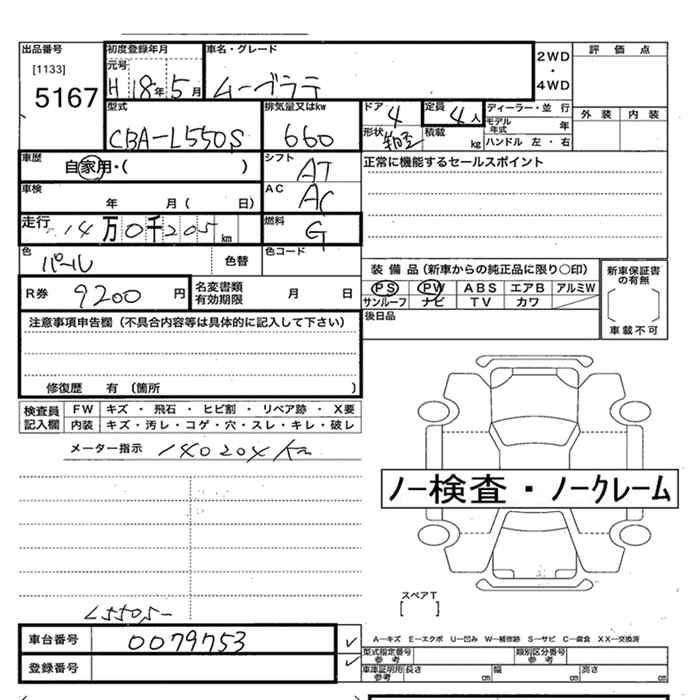 出品番号 初度登録年月 車名・グレード 2WD・4WD 評価点
[1133] 元号
5167 H 18年 5月 ムーヴラテ
型式 排気量又はkw ドア 定員 ディーラー・並行 外装 内装
CBA-L550S 660 4 4人 モデル年式 年
形状 積載 kg ハンドル 左・右
車歴 自家用・( ) シフト AT 正常に機能するセールスポイント
車検 年 月( 日) AC AC
走行 14万0千205km 燃料 G
色 パール 色替 色コード
装備品(新車からの純正品に限り○印) 新車保証書の有無
R券 9200円 名変書類有効期限 月 日 PS PW ABS エアB アルミW
サンルーフ ナビ TV カワ 車載不可
注意事項申告欄(不具合内容等は具体的に記入して下さい) 後日品
修復歴 有(箇所 )
検査員記入欄 FW キズ・飛石・ヒビ割・リペア跡・X要
内装 キズ・汚レ・コゲ・穴・スレ・キレ・破レ
メーター指示 140204km
ノー検査・ノークレーム
スペアT
[ ]
L550S-
車台番号 0079753 ✓ A―キズ E―エクボ U―凹み W―補修跡 S―サビ C―腐食 XX―交換済
型式指定番号参考 類別区分番号参考
登録番号 ✓ 車庫証明参考 長さ cm 幅 cm 高さ cm